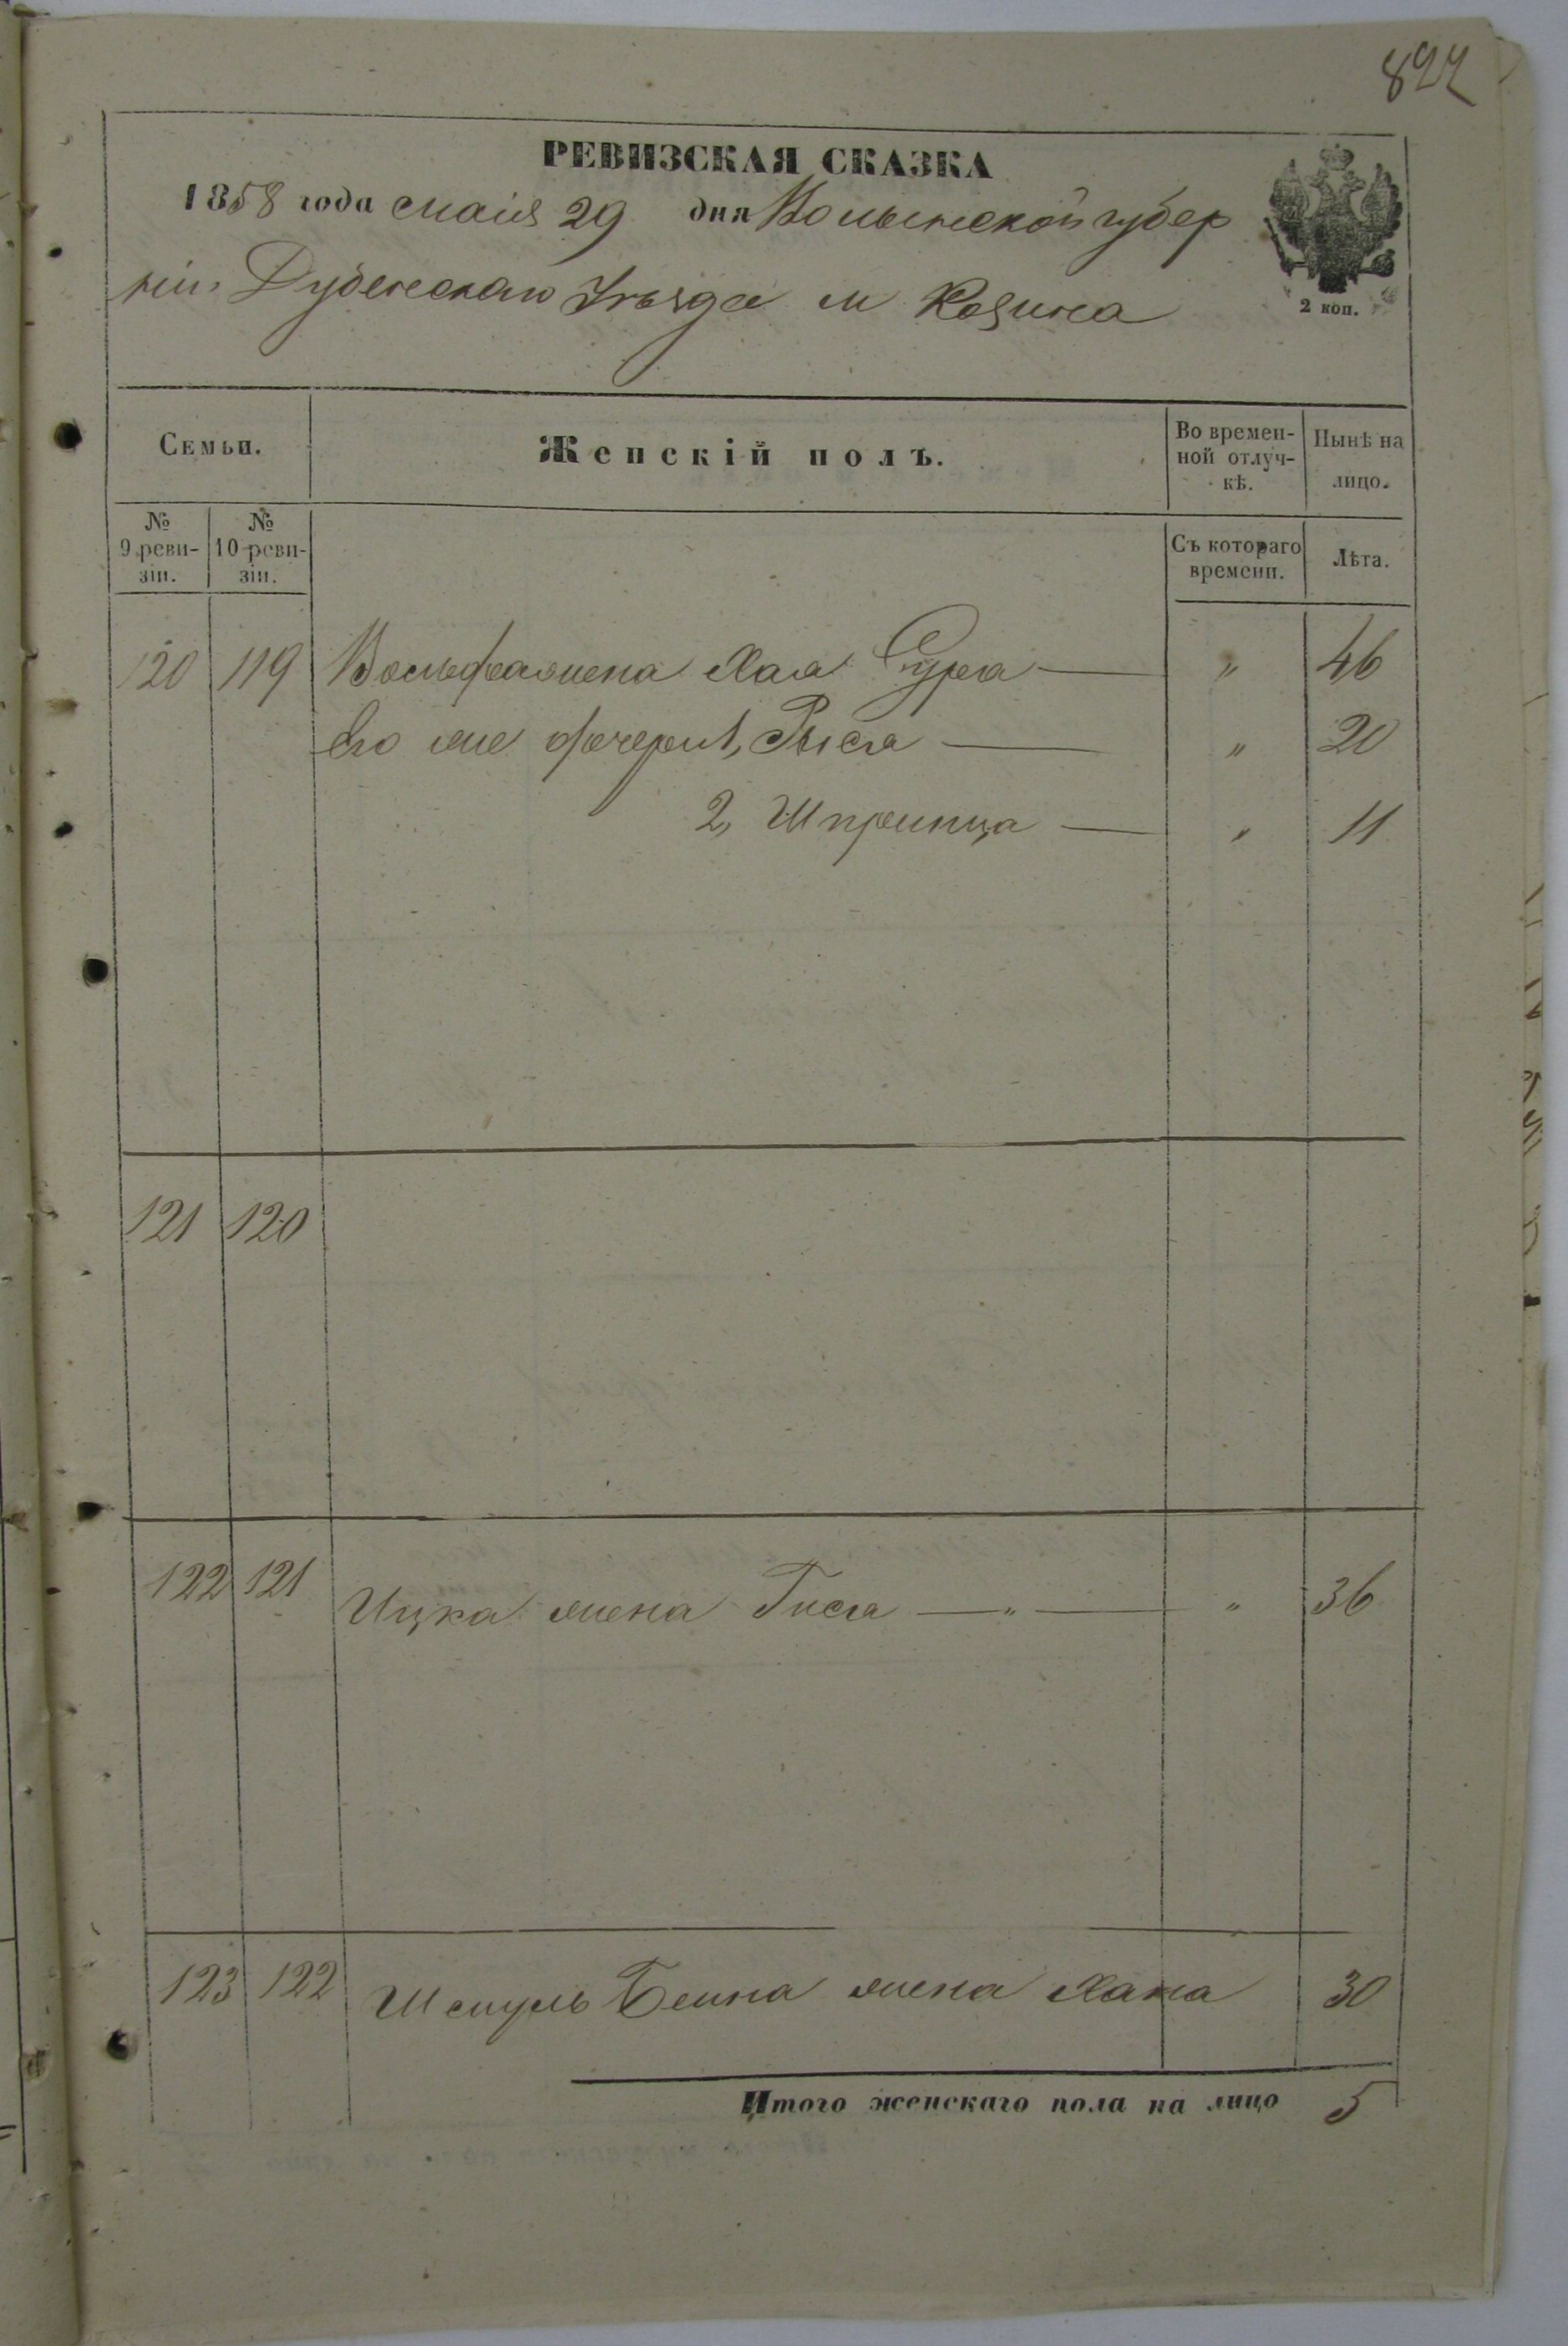 827
РЕВИЗСКАЯ СКАЗКА
1858 года маія 29 дня Волынской губер
ніи Дубенскаго Уѣзда м Козина
2 коп.
Семьи.
Женскій полъ.
Во времен-
ной отлуч-
кѣ.
Нынѣ на
лицо.
№
9 реви-
зіи.
№
10 реви-
зіи.
Съ котораго
времени.
Лѣта.
120 119 Вольфа жена Хая Сура — „ 46
Его же дочери 1, Рыся — „ 20
2, Шпринца — „ 11
121 120
122 121 Ицка жена Гися — „ — „ 36
123 122 Шмуль Беина жена Хана 30
Итого женскаго пола на лицо 5